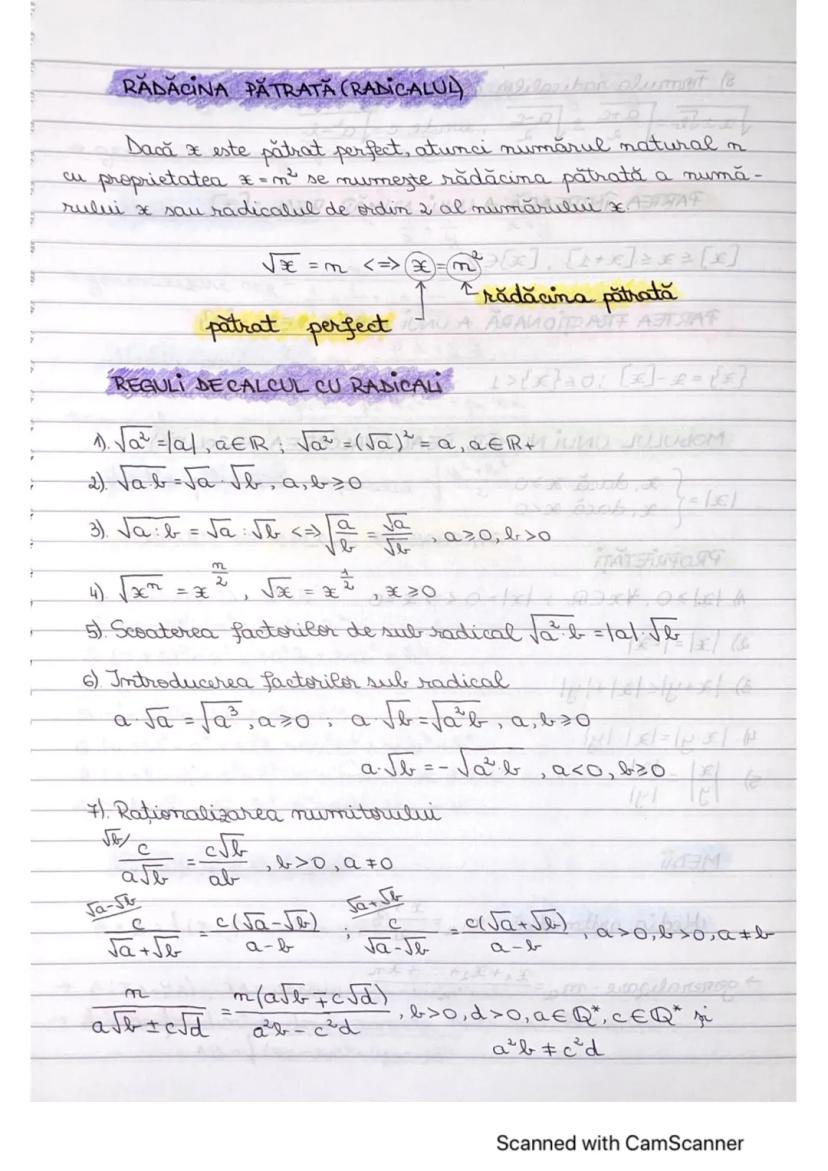 RĂDĂCINA PĂTRATĂ (RADICALUL)
Dacă x este pătrat perfect, atunci numărul natural n
cu proprietatea x = n² se numește rădăcina pătrată a numă-
rului x sau radicalul de ordin 2 al numărului x.
√x = n <=> x = n²
rădăcina pătrată
pătrat perfect
REGULI DE CALCUL CU RADICALI
1). √a² = |a|, a∈ℝ ; √a² = (√a)² = a, a∈ℝ+
2). √a·b = √a · √b, a, b ≥ 0
3). √a:b = √a : √b <=> √(a/b) = √a/√b , a ≥ 0, b > 0
4) √xⁿ = x^(n/2), √x = x^(1/2), x ≥ 0
5). Scoaterea factorilor de sub radical √a²·b = |a|·√b
6). Introducerea factorilor sub radical
a·√a = √a³, a ≥ 0 ; a·√b = √a²b, a, b ≥ 0
a·√b = -√a²·b , a < 0, b ≥ 0
7). Raționalizarea numitorului
√b/ c/(a√b) = c√b/(ab) , b > 0, a ≠ 0
√a-√b/ c/(√a+√b) = c(√a-√b)/(a-b) ; √a+√b/ c/(√a-√b) = c(√a+√b)/(a-b) , a > 0, b > 0, a ≠ b
n/(a√b ± c√d) = n(a√b ∓ c√d)/(a²b - c²d) , b > 0, d > 0, a∈ℚ*, c∈ℚ* și
a²b ≠ c²d
Scanned with CamScanner